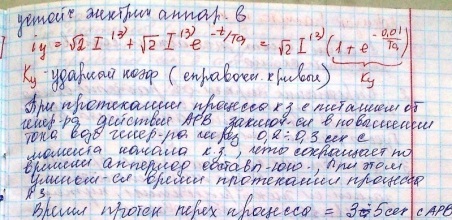 устойч электрич аппар в
iу = √2 I⁽³⁾ + √2 I⁽³⁾ e^(-t/Ta) = √2 I⁽³⁾ (1 + e^(-0,01/Ta))
Kу
Kу - ударной коэф (справочн. кривые)
При протекании процесса к з с питанием от
генер-ра действие АРВ заключ-ся в повышении
тока воз генер-ра через 0,2÷0,3 сек с
момента начала к з, что сокращает по
времени апериод состав-юю, при этом
времени протекания процесса
к з.
Время протек перех процесса = 3÷5 сек с АРВ